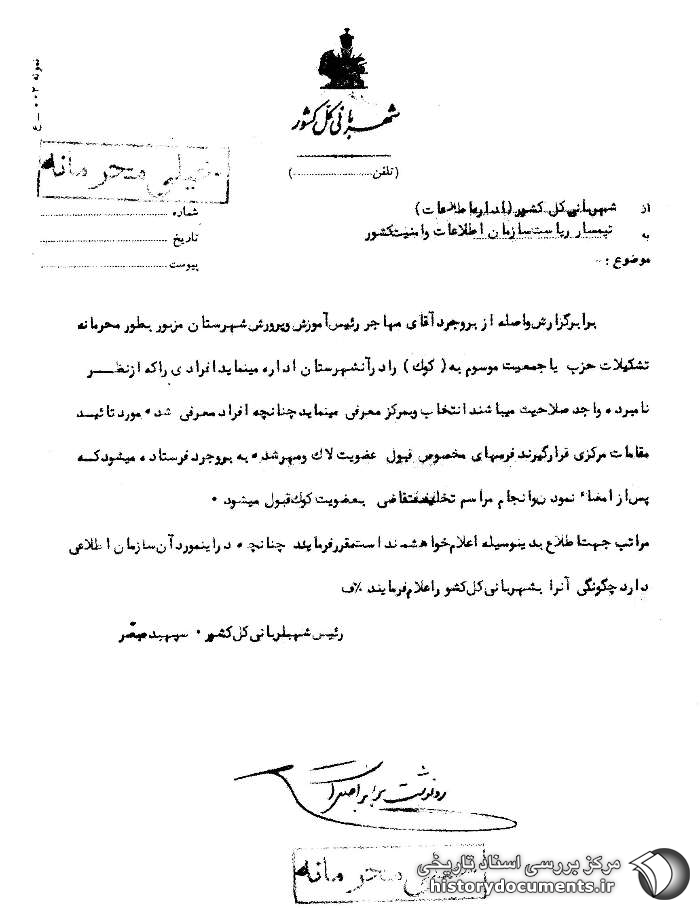 نمونه ۰۰۲ - ع
شهربانی کل کشور
(تلفن ....................)
خیلی محرمانه
شماره
تاریخ
پیوست
از شهربانی کل کشور (اداره اطلاعات)
به تیمسار ریاست سازمان اطلاعات وامنیت کشور
موضوع :
برابر گزارش واصله از بروجرد آقای مهاجر رئیس آموزش و پرورش شهرستان مزبور بطور محرمانه
تشکیلات حزب یا جمعیت موسوم به ( کوک ) را در آنشهرستان اداره مینماید افرادی را که از نظر
نامبرده واجد صلاحیت میباشند انتخاب وبمرکز معرفی مینماید چنانچه افراد معرفی شده مورد تائید
مقامات مرکزی قرار گیرند فرمهای مخصوص قبول عضویت لاک ومهر شده به بروجرد فرستاده میشود که
پس از امضاء نمودن وانجام مراسم تحلیف متقاضی بعضویت کوک قبول میشود .
مراتب جهت اطلاع بدینوسیله اعلام خواهشمند است مقرر فرمایند چنانچه در اینمورد آن سازمان اطلاعی
دارد چگونگی آنرا بشهربانی کل کشور اعلام فرمایند
رئیس شهربانی کل کشور . سپهبد مبصر
رونوشت برابر اصل است
خیلی محرمانه
مرکز بررسی اسناد تاریخی
historydocuments.ir